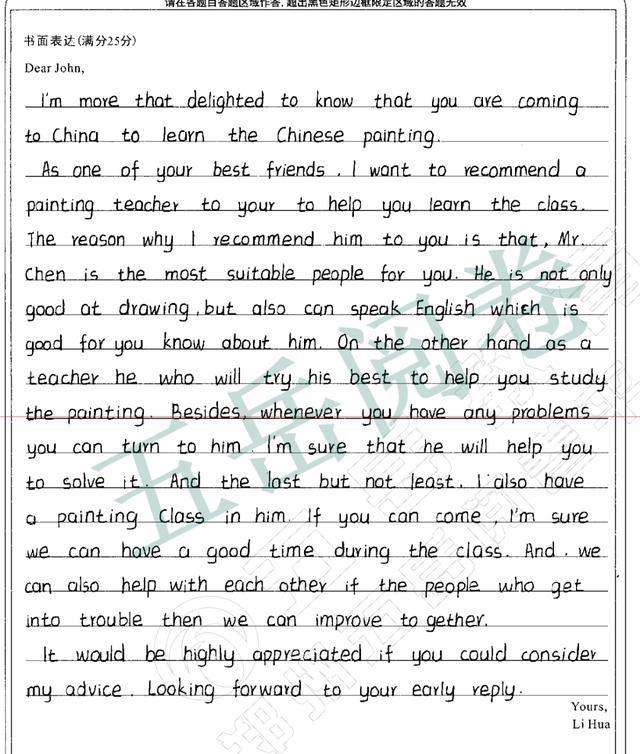 请在各题目答题区域作答,超出黑色矩形边框限定区域的答题无效
书面表达(满分25分)
Dear John,
I'm more that delighted to know that you are coming
to China to learn the Chinese painting.
As one of your best friends, I want to recommend a
painting teacher to your to help you learn the class.
The reason why I recommend him to you is that, Mr.
Chen is the most suitable people for you. He is not only
good at drawing, but also can speak English which is
good for you know about him. On the other hand as a
teacher he who will try his best to help you study
the painting. Besides, whenever you have any problems
you can turn to him. I'm sure that he will help you
to solve it. And the last but not least. I also have
a painting Class in him. If you can come, I'm sure
we can have a good time during the class. And, we
can also help with each other if the people who get
into trouble then we can improve to gether.
It would be highly appreciated if you could consider
my advice. Looking forward to your early reply.
Yours,
Li Hua
五岳阅卷